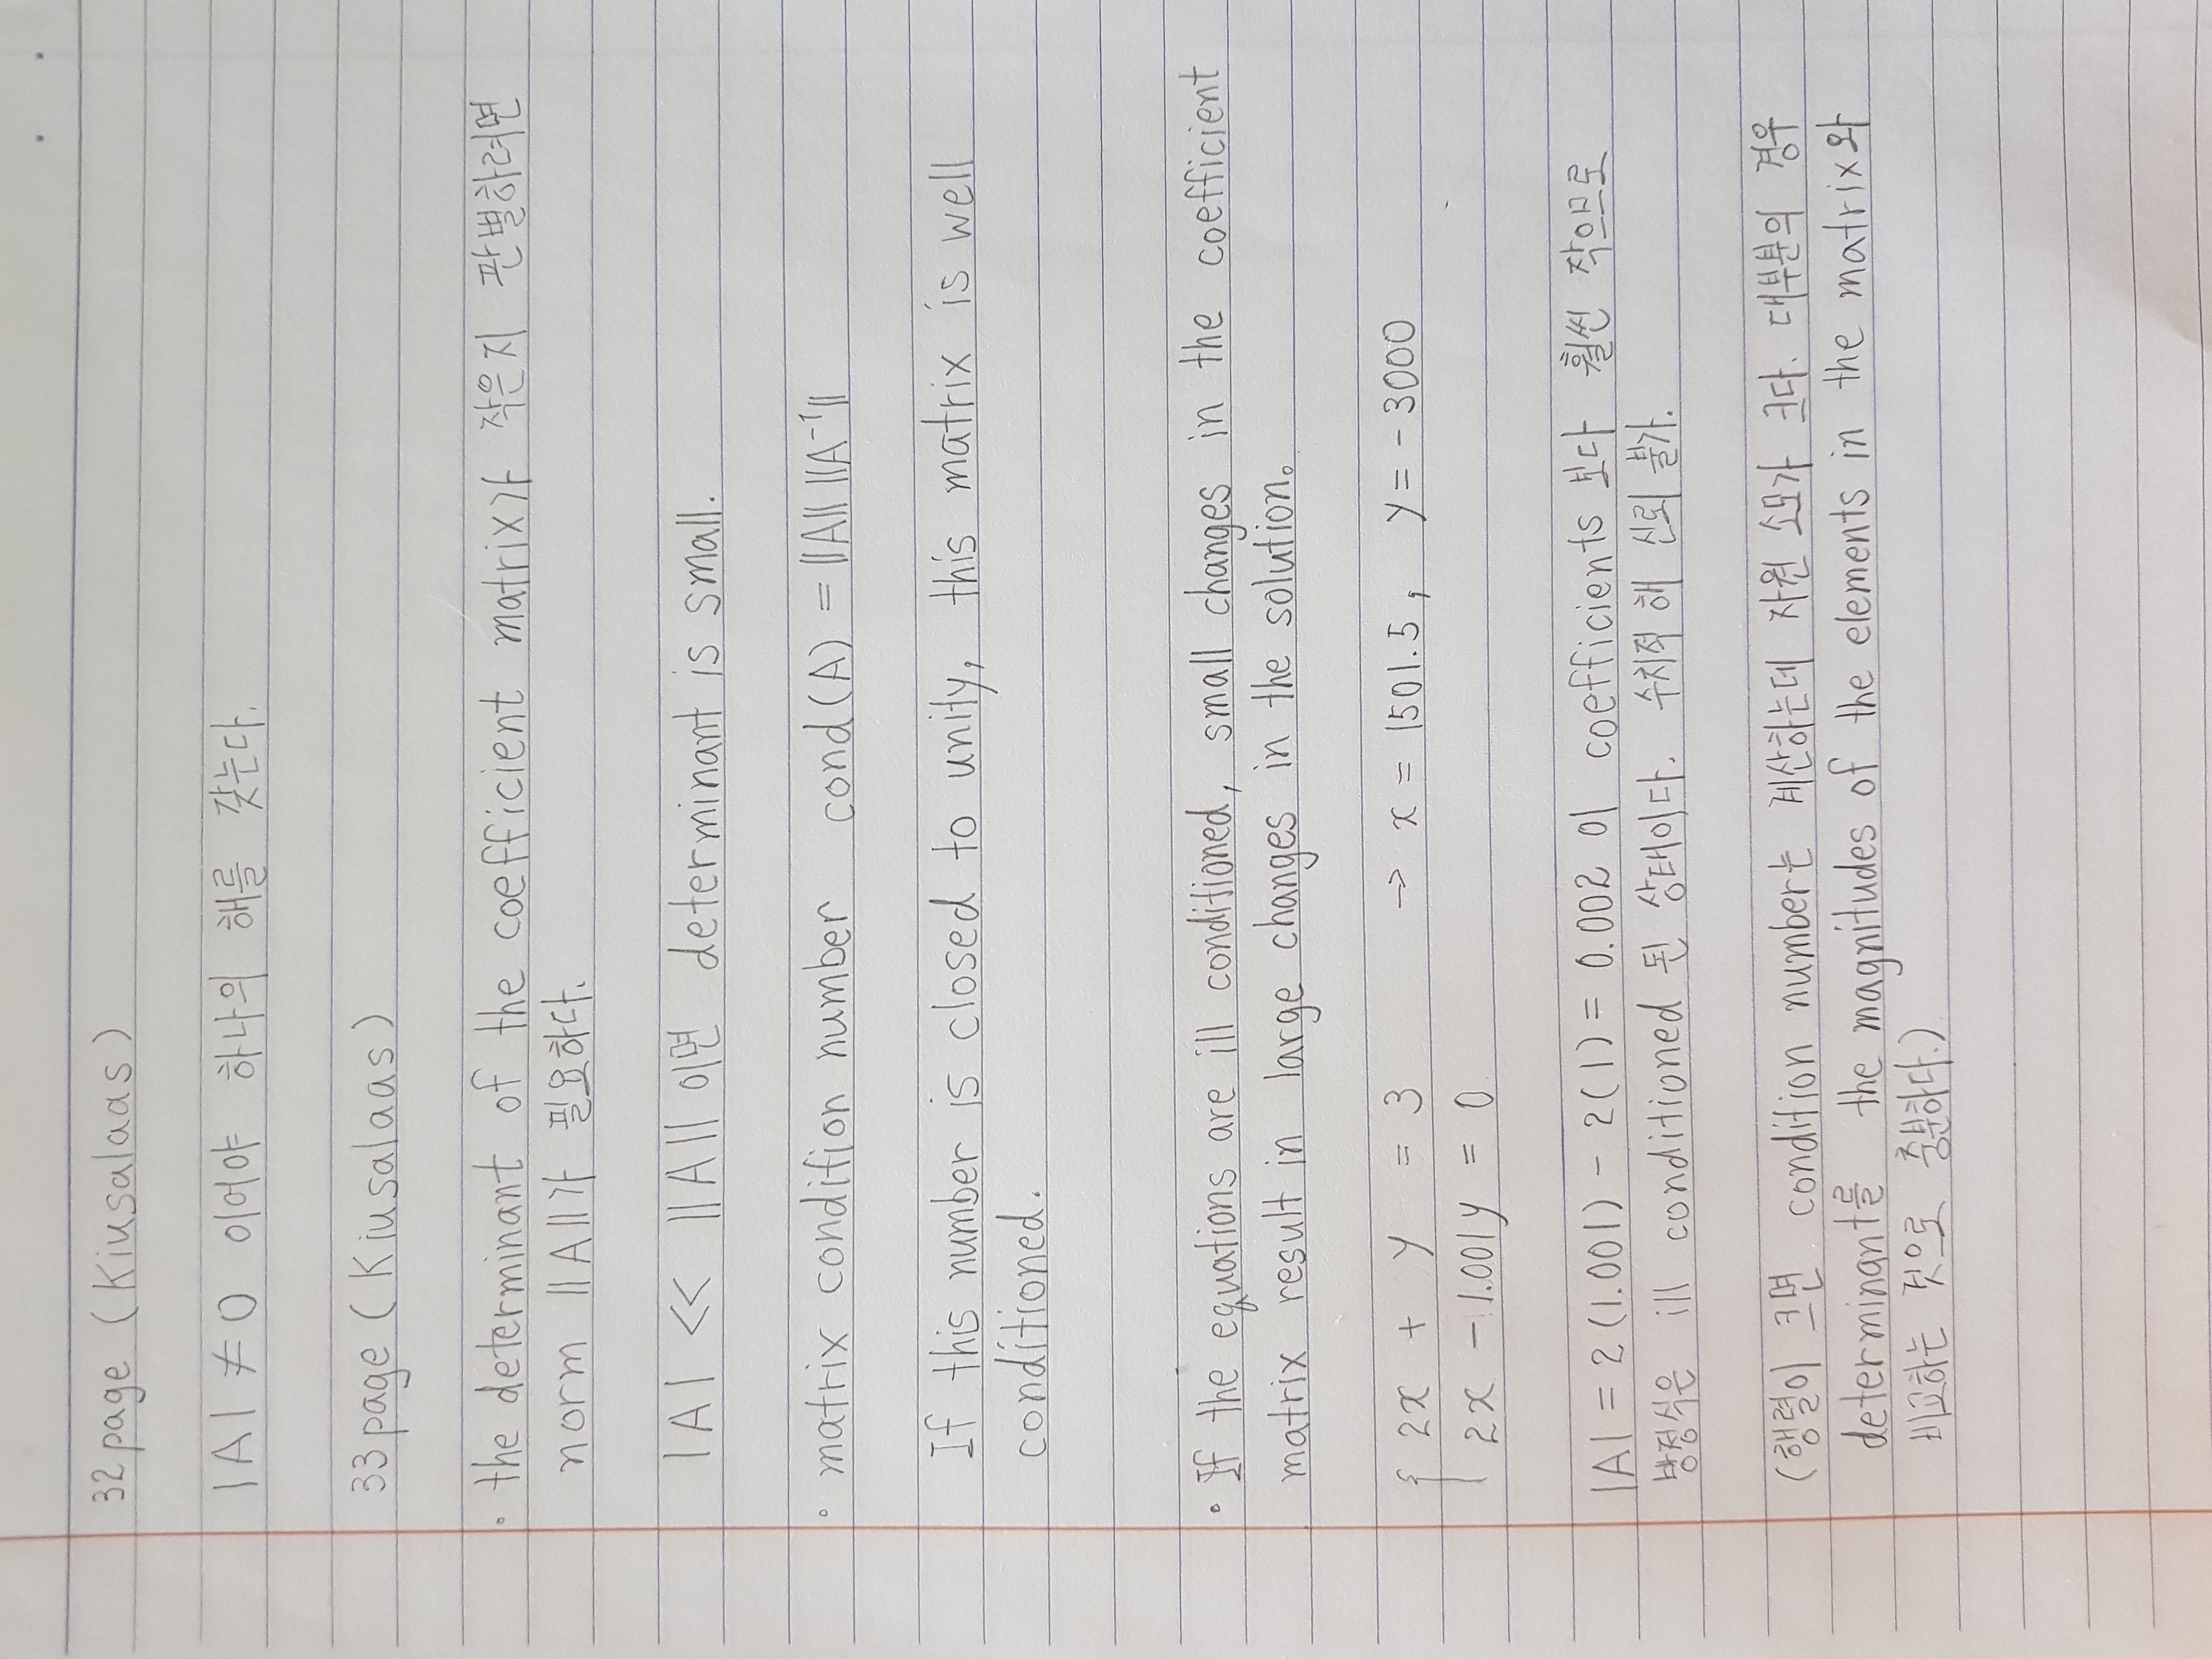 32 page (Kiusalaas)
|A| ≠ 0 이어야 하나의 해를 갖는다.
33 page (Kiusalaas)
• the determinant of the coefficient matrix가 작은지 판별하려면
norm ||A||가 필요하다.
|A| << ||A|| 이면 determinant is small.
• matrix condition number cond(A) = ||A|| ||A⁻¹||
If this number is closed to unity, this matrix is well
conditioned.
• If the equations are ill conditioned, small changes in the coefficient
matrix result in large changes in the solution.
2x + y = 3 → x = 1501.5, y = -3000
2x - 1.001y = 0
|A| = 2(1.001) - 2(1) = 0.002 이 coefficients 보다 훨씬 작으므로
방정식은 ill conditioned 된 상태이다. 수치적 해 신뢰 불가.
(행렬이 크면 condition number는 계산하는데 자원 소모가 크다. 대부분의 경우
determinant를 the magnitudes of the elements in the matrix와
비교하는 것으로 충분하다.)